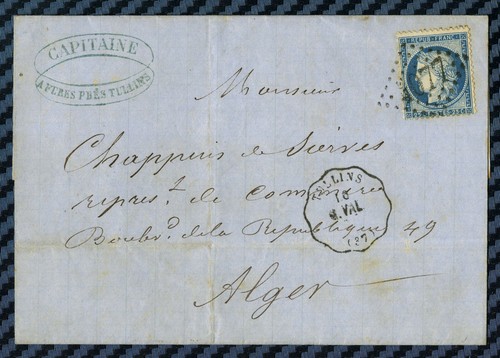 CAPITAINE
A FURES PRÈS TULLINS
REPUB. FRANC.
Monsieur
Chapperis de Sièrves
représ.t de commerce
Boulev.d de la République 49
Alger
TULLINS
VAL
(37)